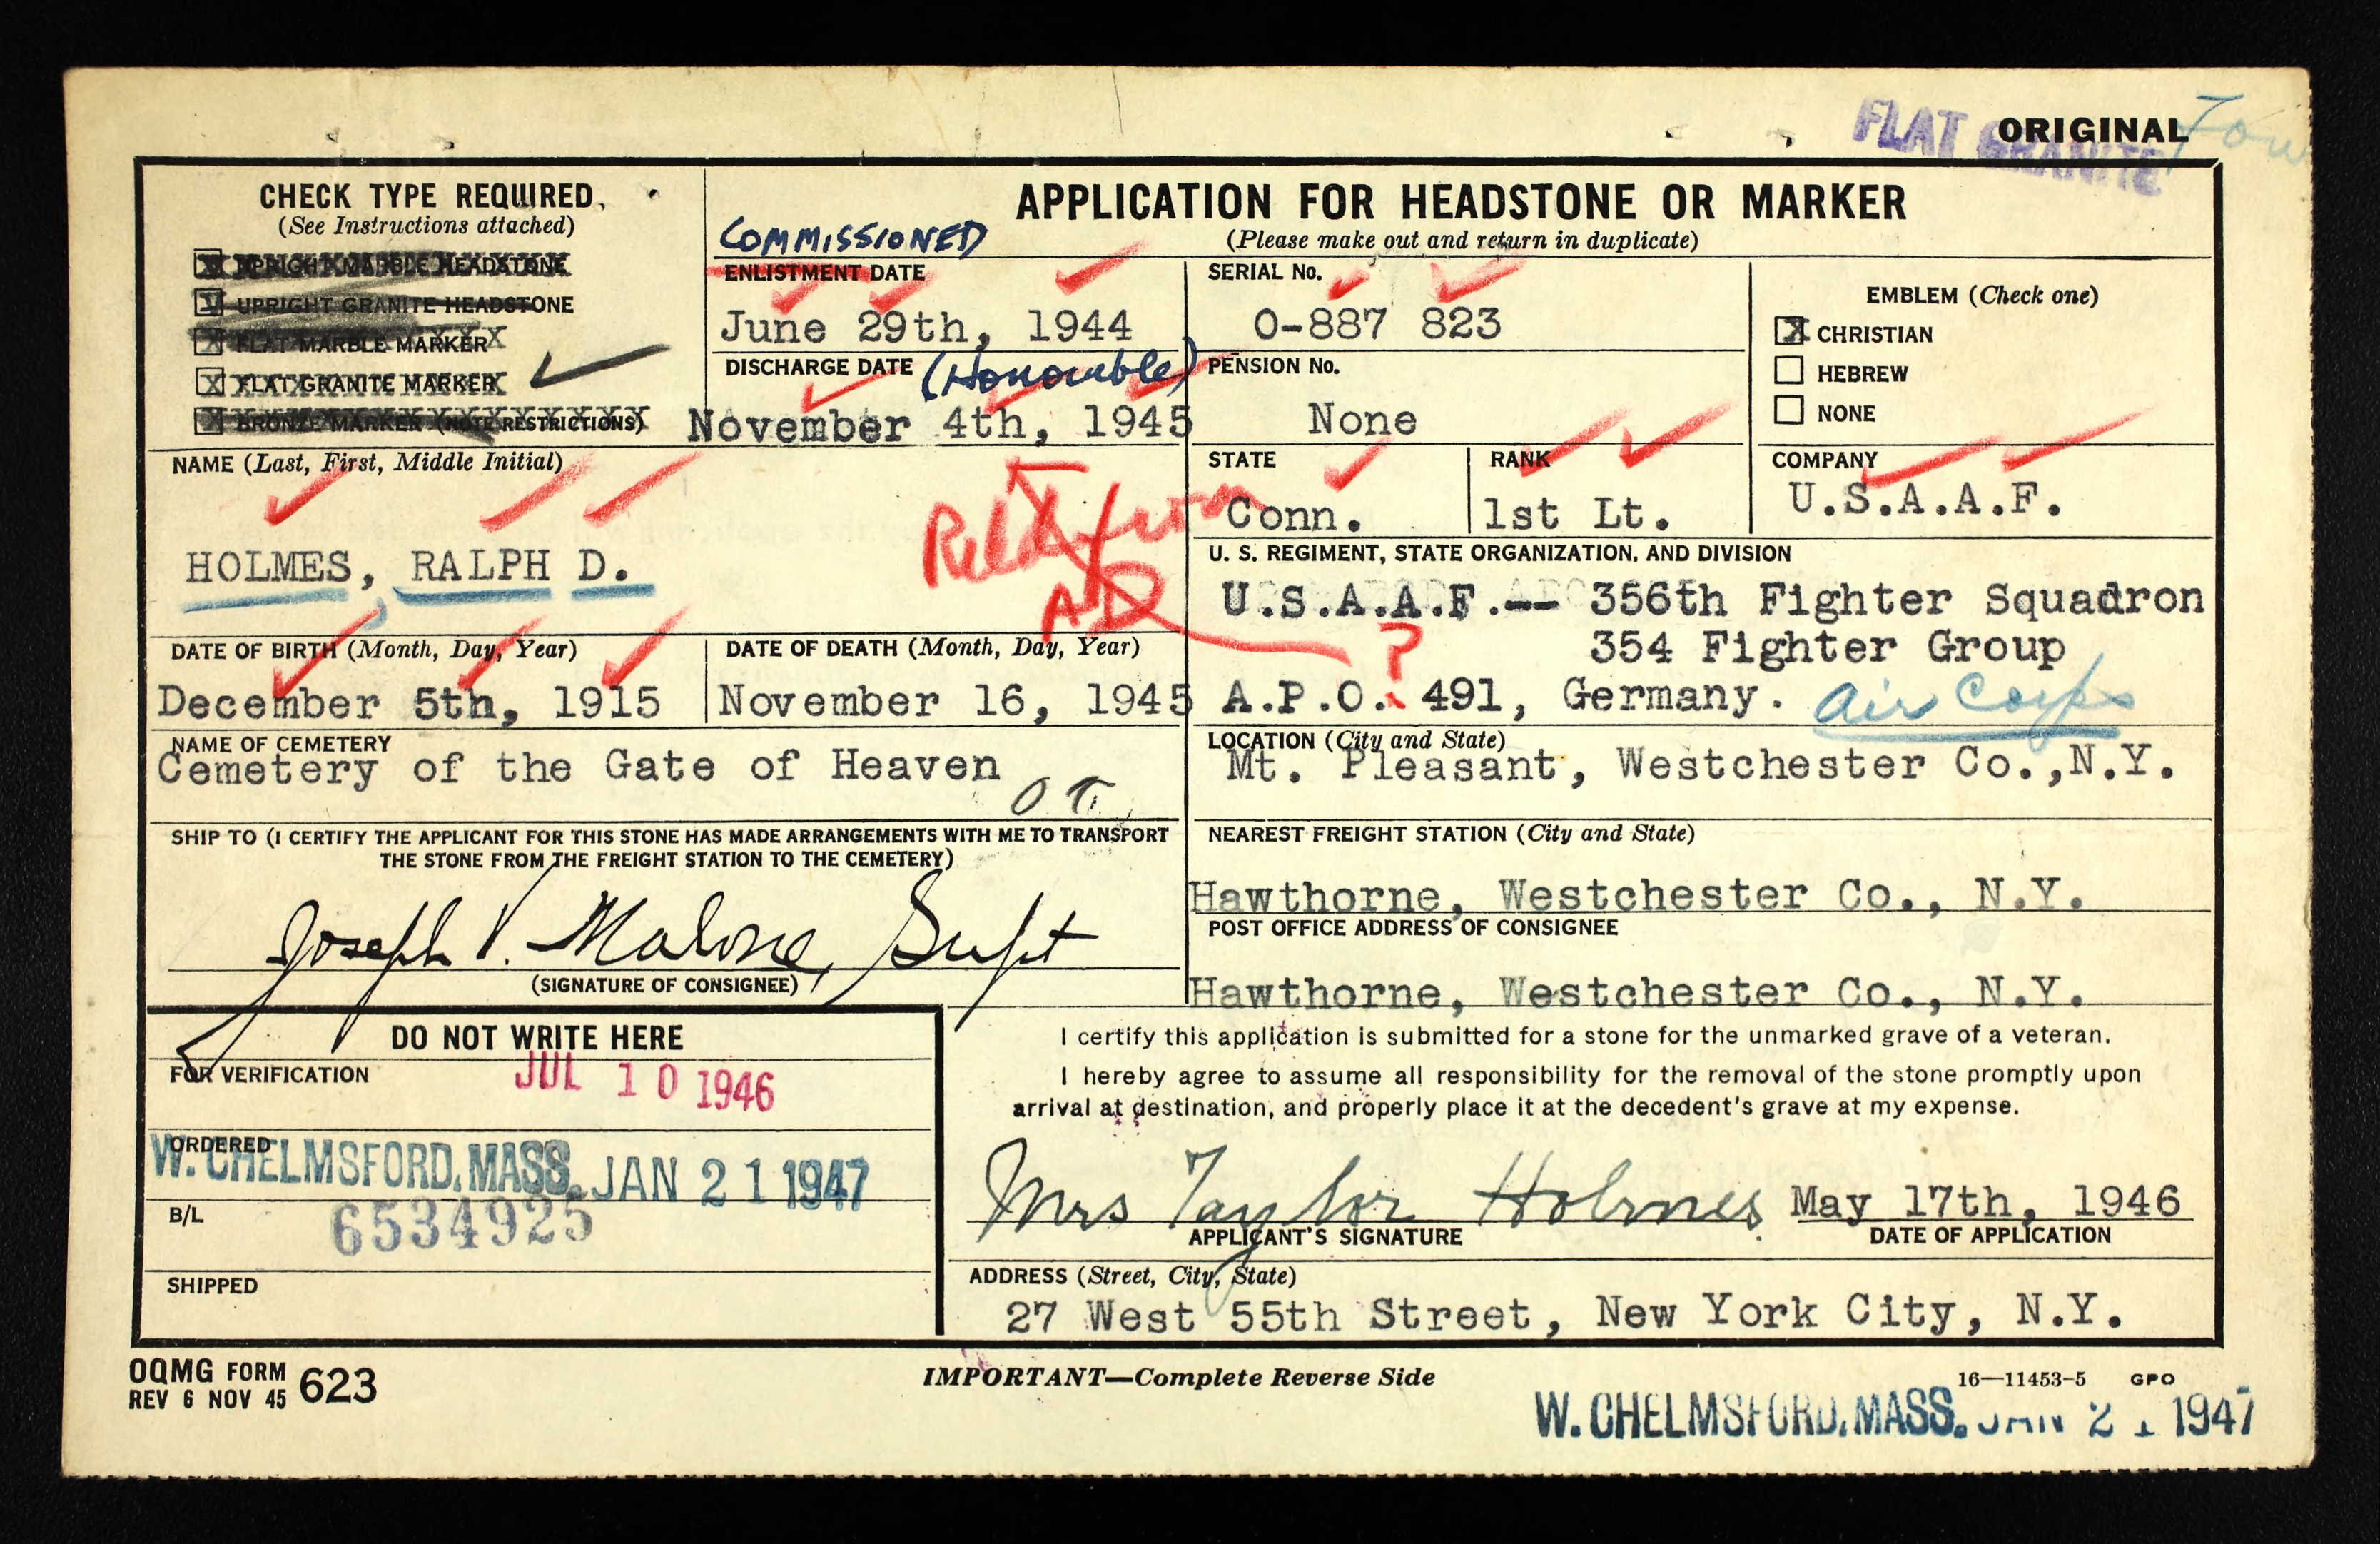 ORIGINAL
FLAT GRANITE
CHECK TYPE REQUIRED
(See Instructions attached)
X UPRIGHT MARBLE HEADSTONE
X UPRIGHT GRANITE HEADSTONE
X FLAT MARBLE MARKER
X FLAT GRANITE MARKER
X BRONZE MARKER (NOTE RESTRICTIONS)
APPLICATION FOR HEADSTONE OR MARKER
(Please make out and return in duplicate)
COMMISSIONED
ENLISTMENT DATE
June 29th, 1944
DISCHARGE DATE (Honorable)
November 4th, 1945
SERIAL No.
O-887 823
PENSION No.
None
EMBLEM (Check one)
X CHRISTIAN
HEBREW
NONE
NAME (Last, First, Middle Initial)
HOLMES, RALPH D.
from
AD
STATE
Conn.
RANK
1st Lt.
COMPANY
U.S.A.A.F.
U. S. REGIMENT, STATE ORGANIZATION, AND DIVISION
U.S.A.A.F.-- 356th Fighter Squadron
354 Fighter Group
?
A.P.O. 491, Germany. Air Corps
DATE OF BIRTH (Month, Day, Year)
December 5th, 1915
DATE OF DEATH (Month, Day, Year)
November 16, 1945
NAME OF CEMETERY
Cemetery of the Gate of Heaven
LOCATION (City and State)
Mt. Pleasant, Westchester Co.,N.Y.
SHIP TO (I CERTIFY THE APPLICANT FOR THIS STONE HAS MADE ARRANGEMENTS WITH ME TO TRANSPORT
THE STONE FROM THE FREIGHT STATION TO THE CEMETERY)
Joseph V. Malone, Supt
(SIGNATURE OF CONSIGNEE)
NEAREST FREIGHT STATION (City and State)
Hawthorne, Westchester Co., N.Y.
POST OFFICE ADDRESS OF CONSIGNEE
Hawthorne, Westchester Co., N.Y.
DO NOT WRITE HERE
FOR VERIFICATION JUL 10 1946
ORDERED
W. CHELMSFORD, MASS. JAN 21 1947
B/L 6534925
SHIPPED
I certify this application is submitted for a stone for the unmarked grave of a veteran.
I hereby agree to assume all responsibility for the removal of the stone promptly upon
arrival at destination, and properly place it at the decedent's grave at my expense.
Mrs Taylor Holmes May 17th, 1946
APPLICANT'S SIGNATURE DATE OF APPLICATION
ADDRESS (Street, City, State)
27 West 55th Street, New York City, N.Y.
OQMG FORM 623
REV 6 NOV 45
IMPORTANT—Complete Reverse Side
16—11453-5 GPO
W. CHELMSFORD, MASS. JAN 21 1947